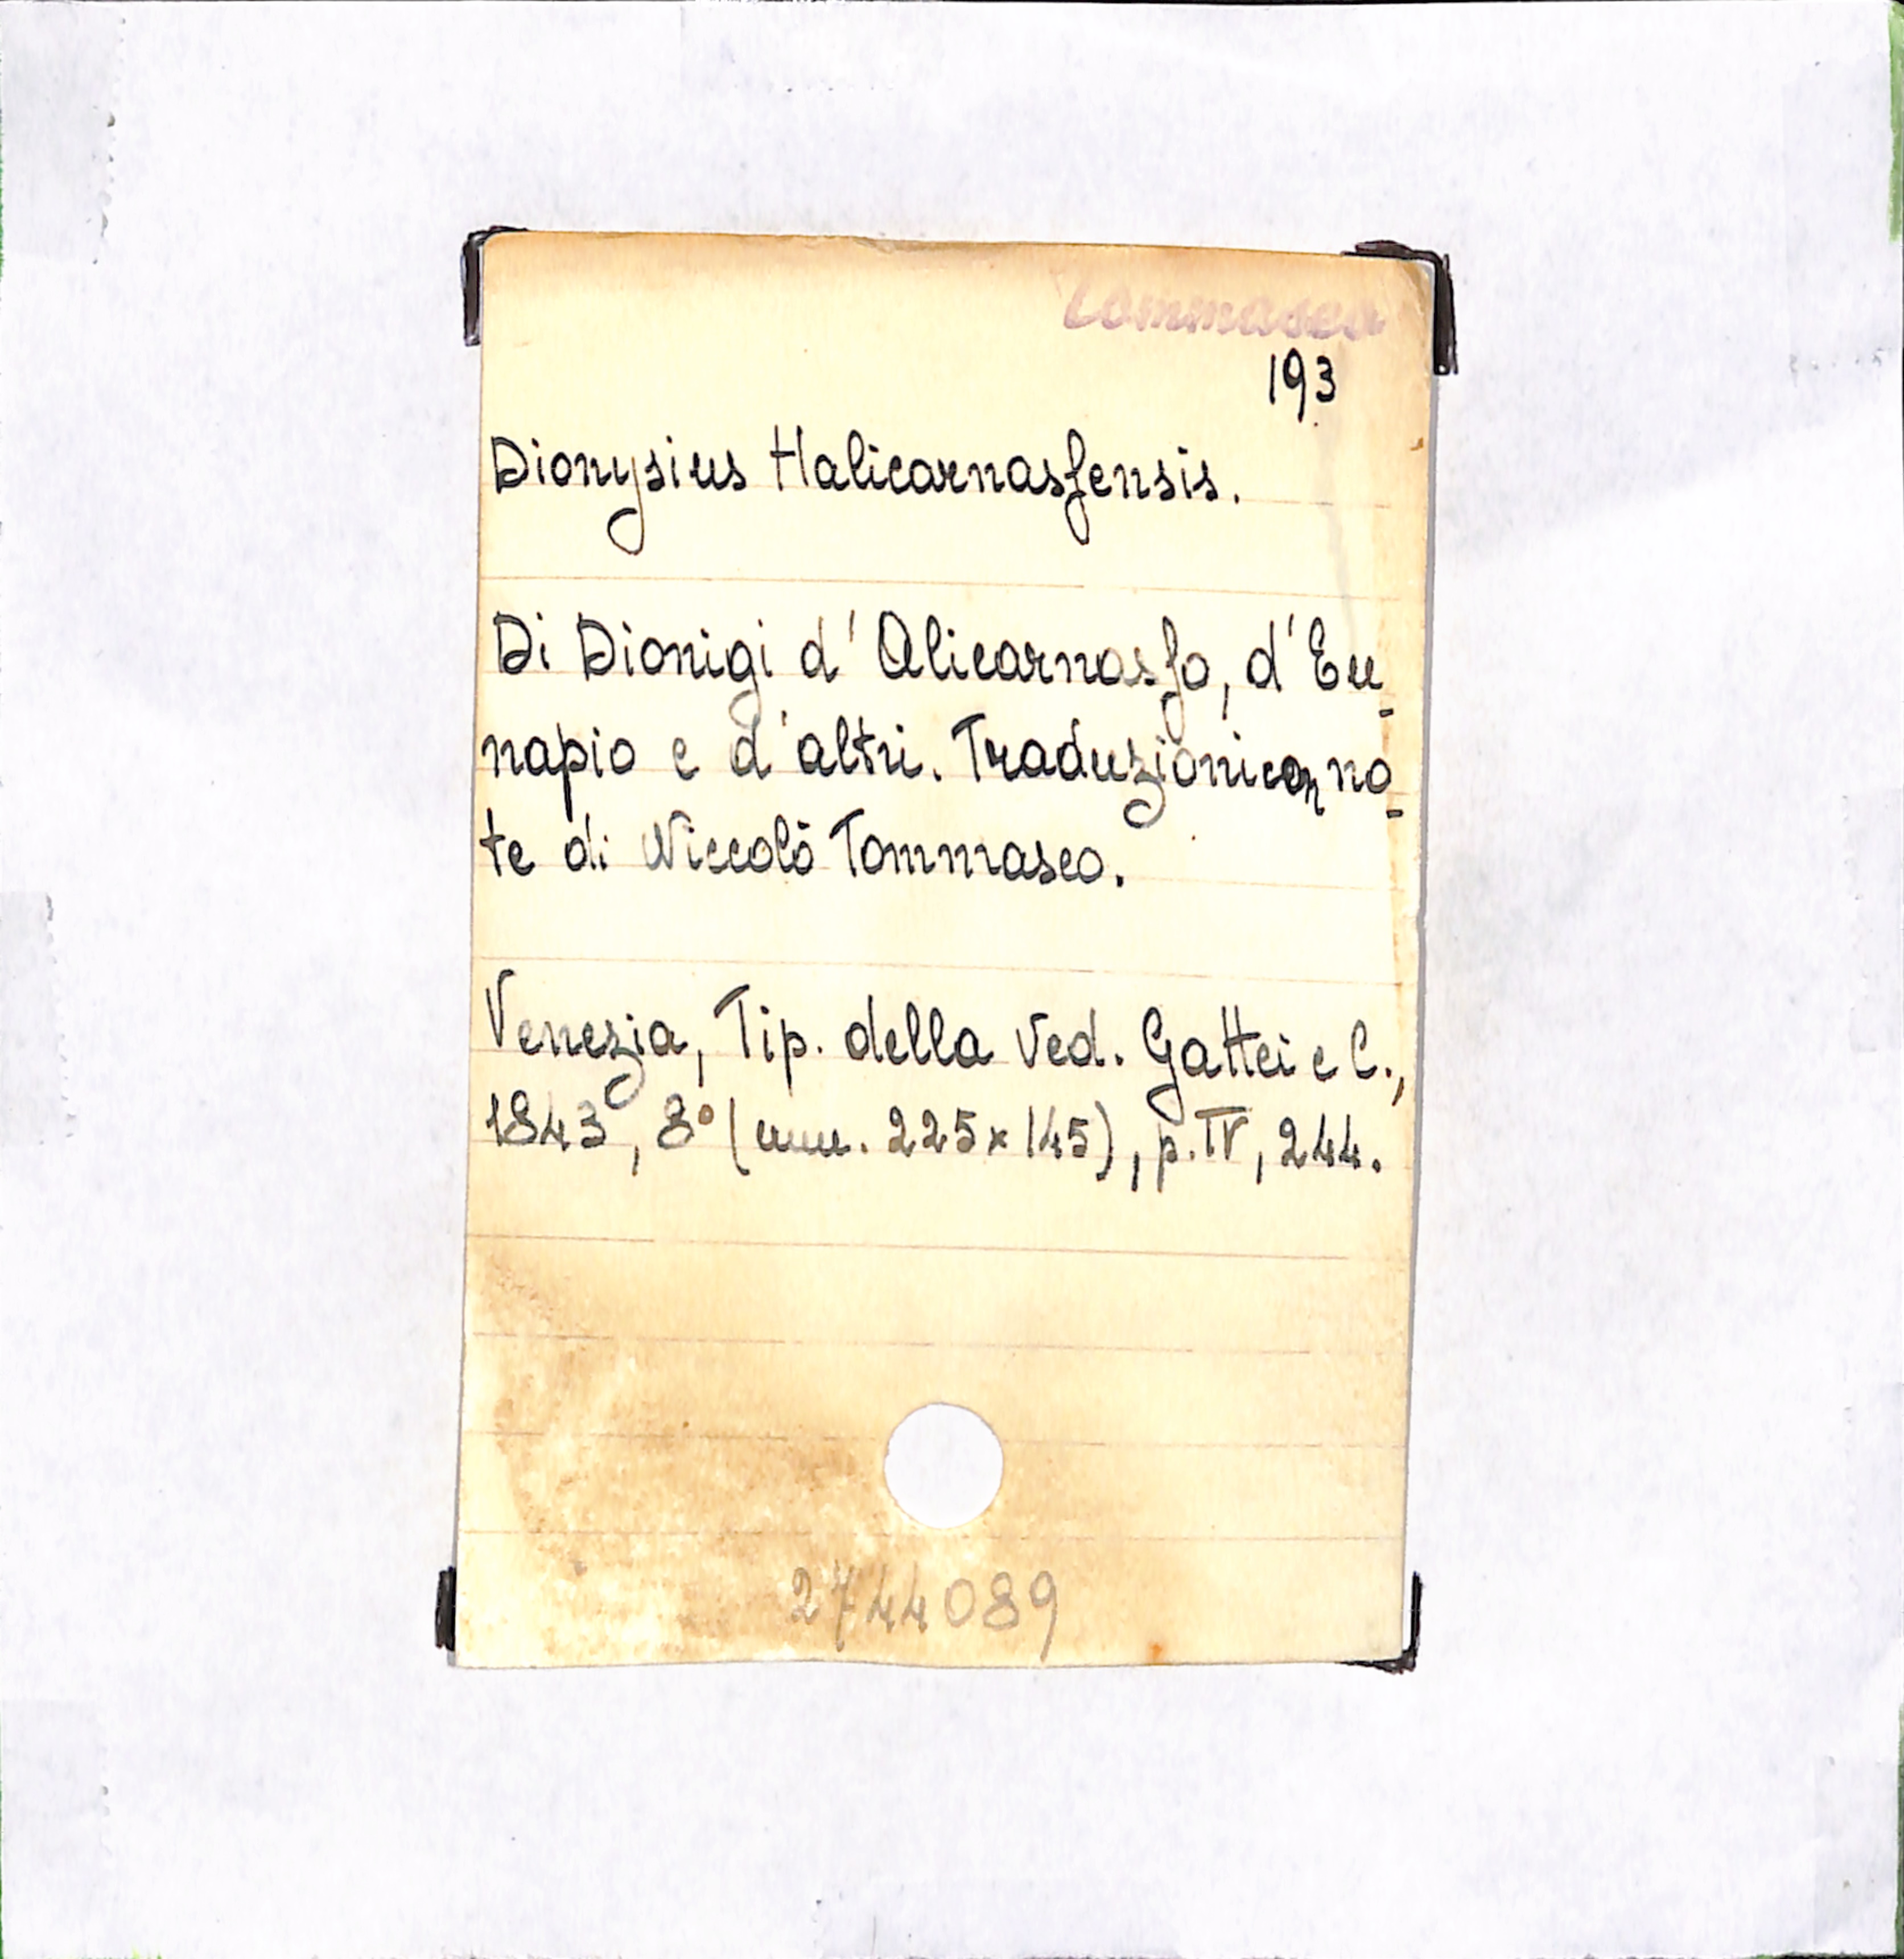 Tommaseo
193
Dionysius Halicarnasſensis.
Di Dionigi d'Alicarnasſo, d'Eu-
napio e d'altri. Traduzioni con no-
te di Niccolò Tommaseo.
Venezia, Tip. della Ved. Gattei e C.,
1843, 8° (mm. 225x145), p. IV, 244.
2744089